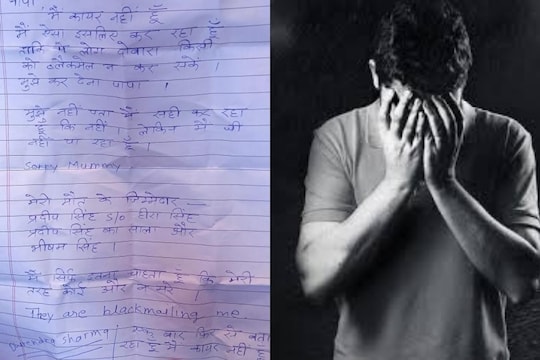 पापा,
मैं कायर नहीं हूँ
मैं ऐसा इसलिए कर रहा हूँ
ताकि ये लोग दोबारा किसी
को ब्लैकमेल न कर सकें ।
मुझे कर देना पापा ,
मुझे नहीं पता मैं सही कर रहा
हूँ कि नहीं । लेकिन मैं जी
नहीं पा रहा हूँ ।
Sorry Mummy
मेरी मौत के जिम्मेदार —
प्रदीप सिंह s/o हीरा सिंह
प्रदीप सिंह का साला और
भीषम सिंह ।
मैं सिर्फ इतना चाहता हूँ कि मेरी
तरह कोई और न मरे ।
They are blackmailing me
sharma एक बार फिर से बता
रहा हूँ मैं कायर नहीं हूँ